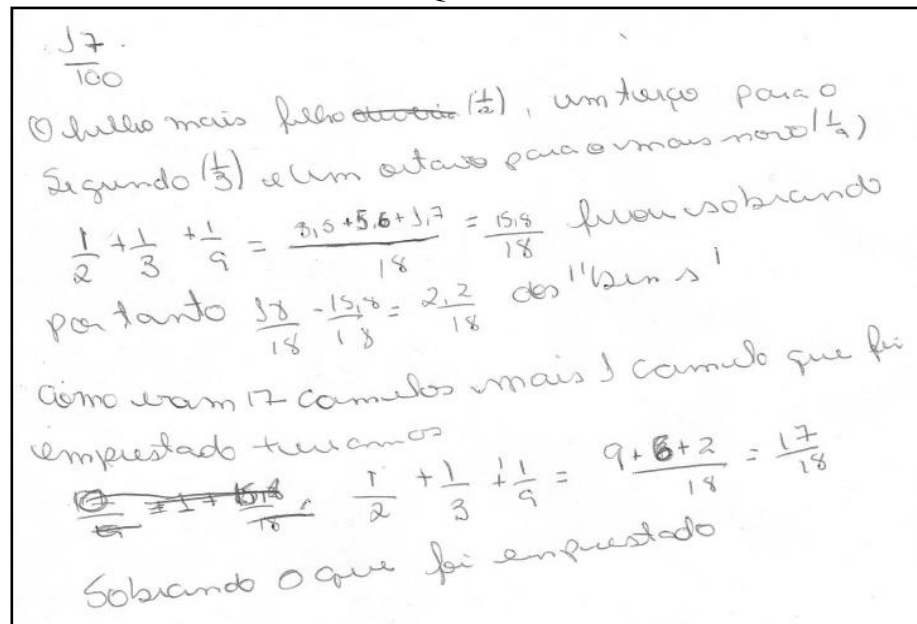 17
100
O filho mais filho (1/2), um terço para o
Segundo (1/3) e um oitavo para o mais novo (1/9)
1/2 + 1/3 + 1/9 = 8,5 + 5,6 + 1,7 / 18 = 15,8/18 ficou sobrando
portanto 18/18 - 15,8/18 = 2,2/18 dos "bens"
como eram 17 camelos mais 1 camelo que foi
emprestado teriamos
1/2 + 1/3 + 1/9 = 9 + 6 + 2 / 18 = 17/18
Sobrando o que foi emprestado